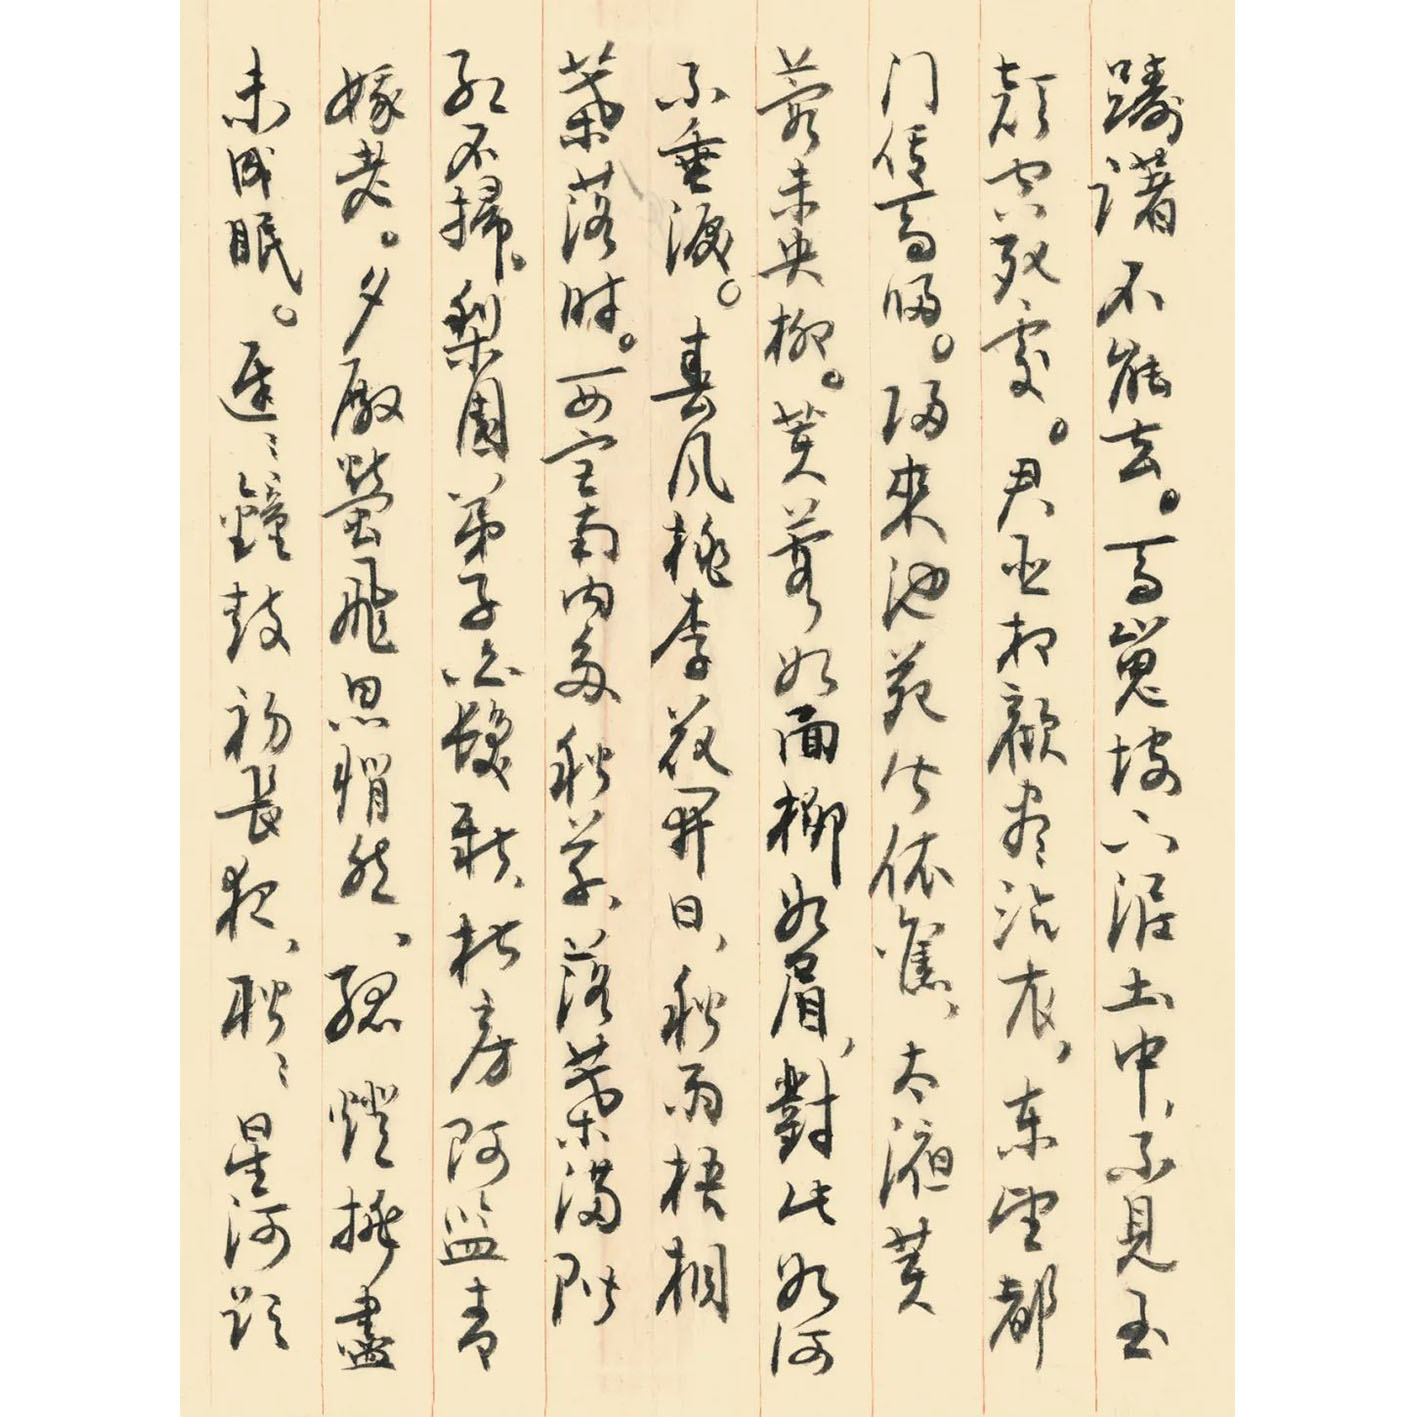 踌躇不能去。馬嵬坡下泥土中,不見玉
顏空死處。君臣相顧盡沾衣,东望都
门信馬歸。歸來池苑皆依舊,太液芙
蓉未央柳。芙蓉如面柳如眉,對此如何
不垂淚。春风桃李花開日,秋雨梧桐
葉落時。西宫南内多秋草,落葉滿階
红不掃。梨園弟子白髮新,椒房阿监青
娥老。夕殿螢飛思悄然,孤燈挑盡
未成眠。遲〻鐘鼓初長夜,耿〻星河欲